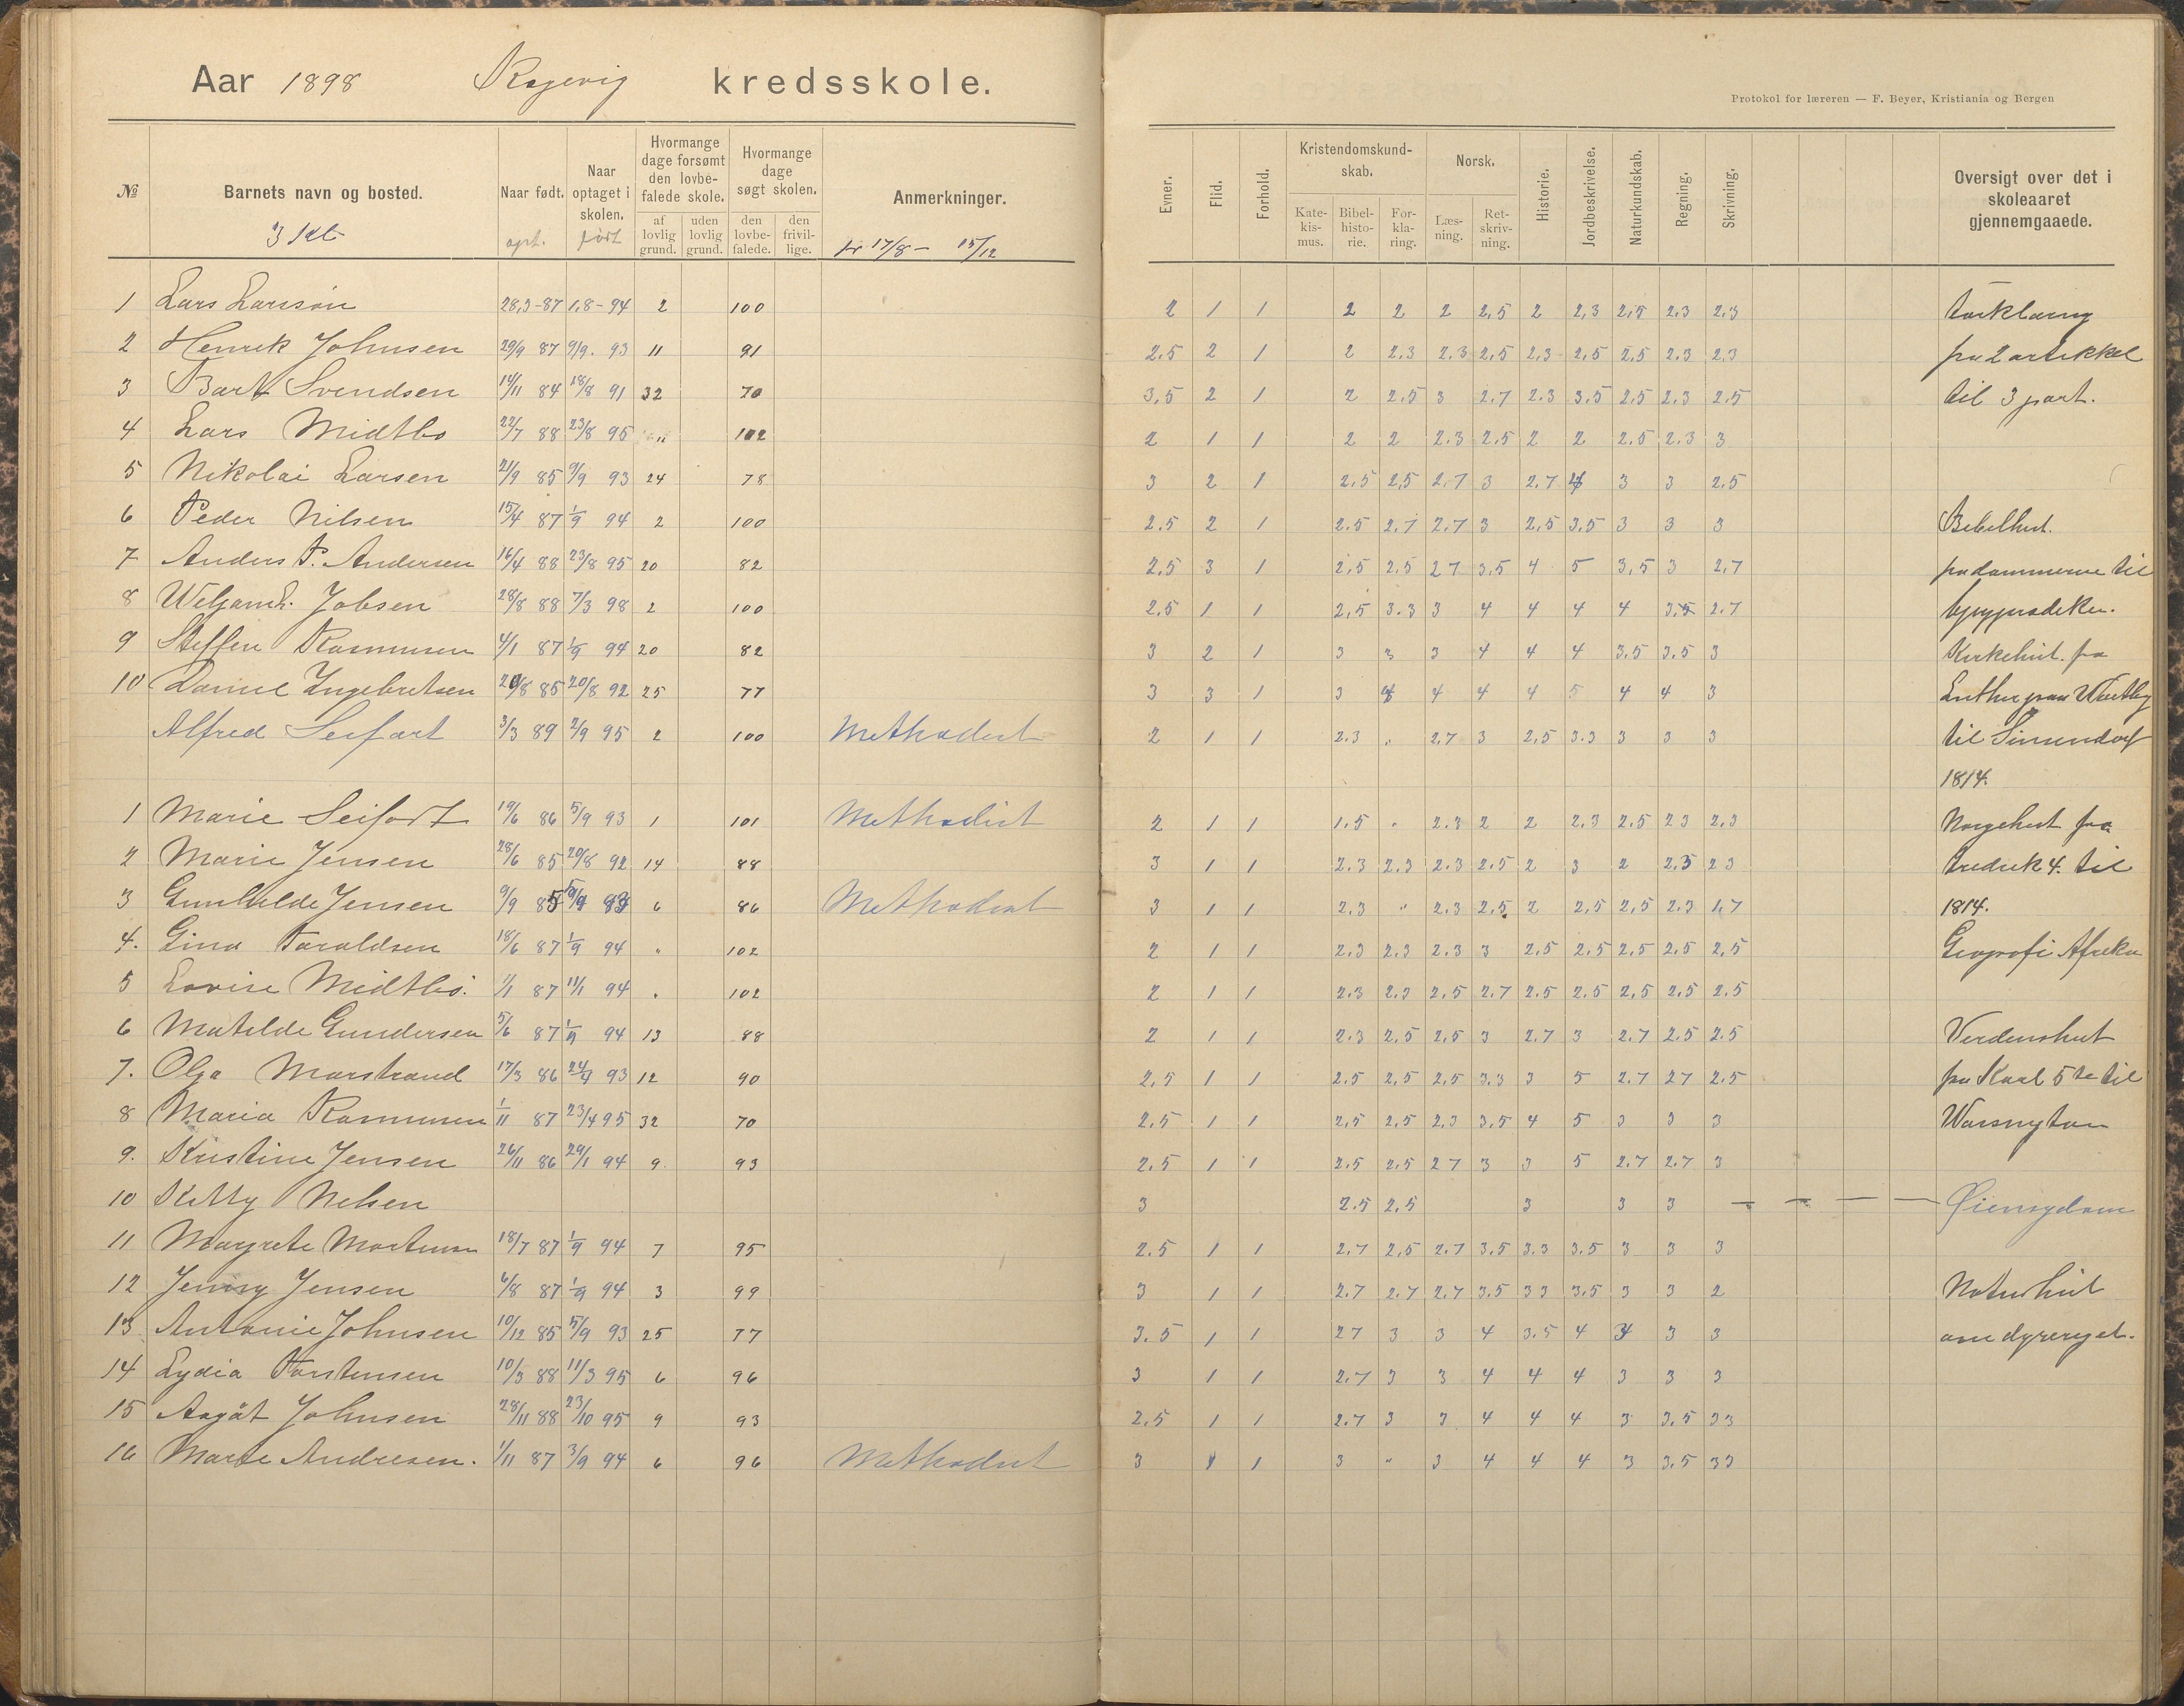 Aar 1898 Røgevig kredsskole.
Protokol for læreren — F. Beyer, Kristiania og Bergen
№ Barnets navn og bosted. Naar født. Naar optaget i skolen. Hvormange dage forsømt den lovbefalede skole. Hvormange dage søgt skolen. Anmerkninger.
af lovlig grund. uden lovlig grund. den lovbefalede. den frivillige.
3 kl fr 17/8 – 15/12
Evner. Flid. Forhold. Kristendomskundskab. Norsk. Historie. Jordbeskrivelse. Naturkundskab. Regning. Skrivning. Oversigt over det i skoleaaret gjennemgaaede.
Katekismus. Bibelhistorie. Forklaring. Læsning. Retskrivning.
1 Lars Larssøn 28,3-87 1,8-94 2 100 2 1 1 2 2 2 2,5 2 2,3 2,5 2.3 2.3 Forklaring
2 Henrik Johnsen 29/9 87 9/9. 93 11 91 2.5 2 1 2 2.3 2.3 2,5 2.3 2,5 2.5 2.3 2.3 fra 2 artikkel
3 Bart Svendsen 14/11 84 18/8 91 32 70 3,5 2 1 2 2.5 3 2.7 2.3 3.5 2.5 2.3 2.5 til 3 part.
4 Lars Midtbø 22/7 88 23/8 95 " 102 2 1 1 2 2 2.3 2.5 2 2 2.5 2.3 3
5 Nikolai Larsen 21/9 85 9/9 93 24 78 3 2 1 2.5 2,5 2.7 3 2.7 4 3 3 2.5
6 Peder Nilsen 15/4 87 1/9 94 2 100 2.5 2 1 2.5 2.7 2.7 3 2,5 3.5 3 3 3 Bibelhist.
7 Anders P. Andersen 16/4 88 23/8 95 20 82 2,5 3 1 2,5 2.5 27 3,5 4 5 3,5 3 2,7 fra dommerne til
8 Wiljam L. Jobsen 28/8 88 7/3 98 2 100 2.5 1 1 2,5 3.3 3 4 4 4 4 3,5 2.7
9 Steffen Rasmussen 4/1 87 1/9 94 20 82 3 2 1 3 3 3 4 4 4 3.5 3.5 3 Kirkehist. fra
10 Daniel Ingebretsen 20/8 85 20/8 92 25 77 3 3 1 3 4 4 4 4 5 4 4 3
Alfred Seifart 3/3 89 2/9 95 2 100 Methodist 2 1 1 2.3 " 2,7 3 2,5 3.3 3 3 3 til
1814.
1 Marie Seifart 19/6 86 5/9 93 1 101 Methodist 2 1 1 1.5 " 2.3 2 2 2.3 2.5 23 2.3 Norgehist fra
2 Marie Jensen 28/6 85 20/8 92 14 88 3 1 1 2.3 2.3 2.3 2.5 2 3 2 2.5 23 Fredrik 4. til
3 Gunhilde Jensen 9/9 85 6 86 Methodist 3 1 1 2.3 " 2.3 2.5 2 2,5 2,5 2.3 1,7 1814.
4. Gina Taraldsen 18/6 87 1/9 94 " 102 2 1 1 2.3 2.3 2.3 3 2.5 2.5 2.5 2,5 2,5 Geografi Afrika
5 Lovise Midtbø. 1/1 87 11/1 94 " 102 2 1 1 2.3 2.3 2.5 2.7 2.5 2.5 2,5 2.5 2.5
6 Matilde Gundersen 5/6 87 1/9 94 13 88 2 1 1 2.3 2.5 2,5 3 2.7 3 2.7 2.5 2.5 Verdenshist
7. Olga Marstrand 17/3 86 93 12 90 2,5 1 1 2.5 2,5 2,5 3.3 3 5 2.7 27 2.5 fra Karl 5te til
8 Maria Rasmussen 1/11 87 23/4 95 32 70 2.5 1 1 2,5 2,5 2.3 3.5 4 5 3 3 3 Wassnyton
9. Kristine Jensen 26/11 86 29/1 94 9 93 2.5 1 1 2.5 2.5 27 3 3 5 2.7 2.7 3
10 Kitty Nelsen 3 2.5 2,5 3 3 3 — — — — Øiensygdom
11 Margrete Mortensen 18/7 87 1/9 94 7 95 2.5 1 1 2.7 2,5 2.7 3.5 3.3 3.5 3 3 3
12 Jenny Jensen 6/8 87 1/9 94 3 99 3 1 1 2.7 2.7 2.7 3.5 33 3,5 3 3 2 Naturhist
13 Antonie Johnsen 10/12 85 5/9 93 25 77 3.5 1 1 27 3 3 4 3.5 4 4 3 3 om dyreriget.
14 Lydia Torstensen 10/3 88 11/3 95 6 96 3 1 1 2.7 3 3 4 4 4 3 3 3
15 Aagåt Johnsen 28/11 88 23/10 95 9 93 2,5 1 1 2.7 3 3 4 4 4 3 3.5 33
16 Marte Andresen. 1/11 87 3/9 94 6 96 Methodist 3 1 1 3 " 3 4 4 4 3 3.5 33